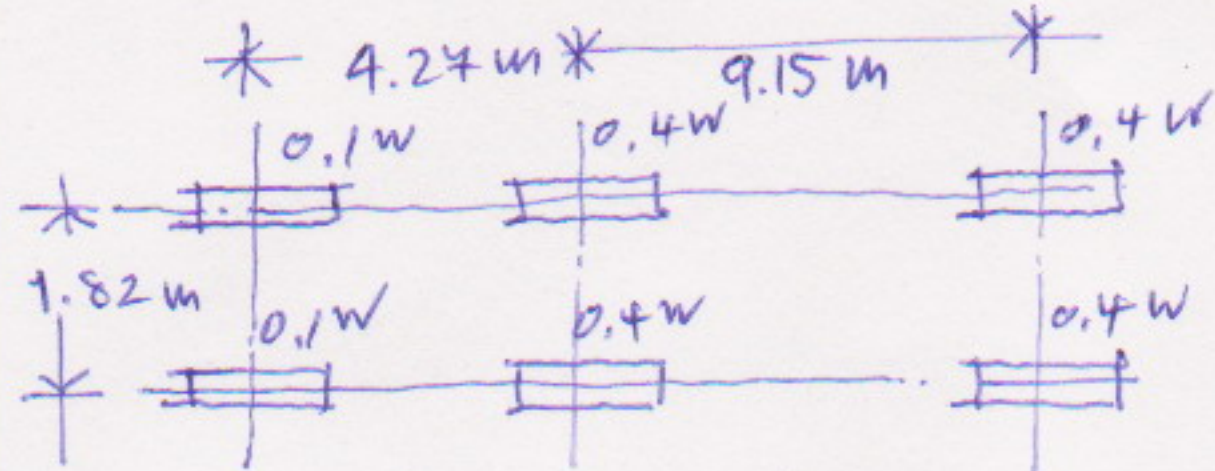 4.27 m 9.15 m
0.1W 0.4W 0.4W
1.82 m
0.1W 0.4W 0.4W